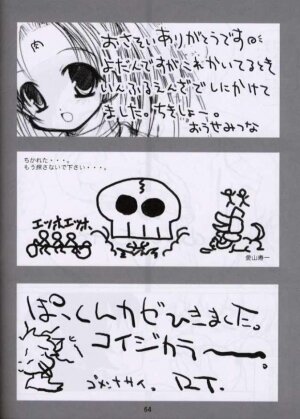 肉
おさそいありがとうです。
よだんですがこれかいてるとき
いんふるえんでで しにかけて
ました。ちきしょー。
おうせみつな
ちかれた・・・。
もう探さないで下さい・・・。
エッホエッホ
愛山寿一
ぽっくんカゼひきました。
コイジカラー。
ゴメンナサイ。 R.T.
64